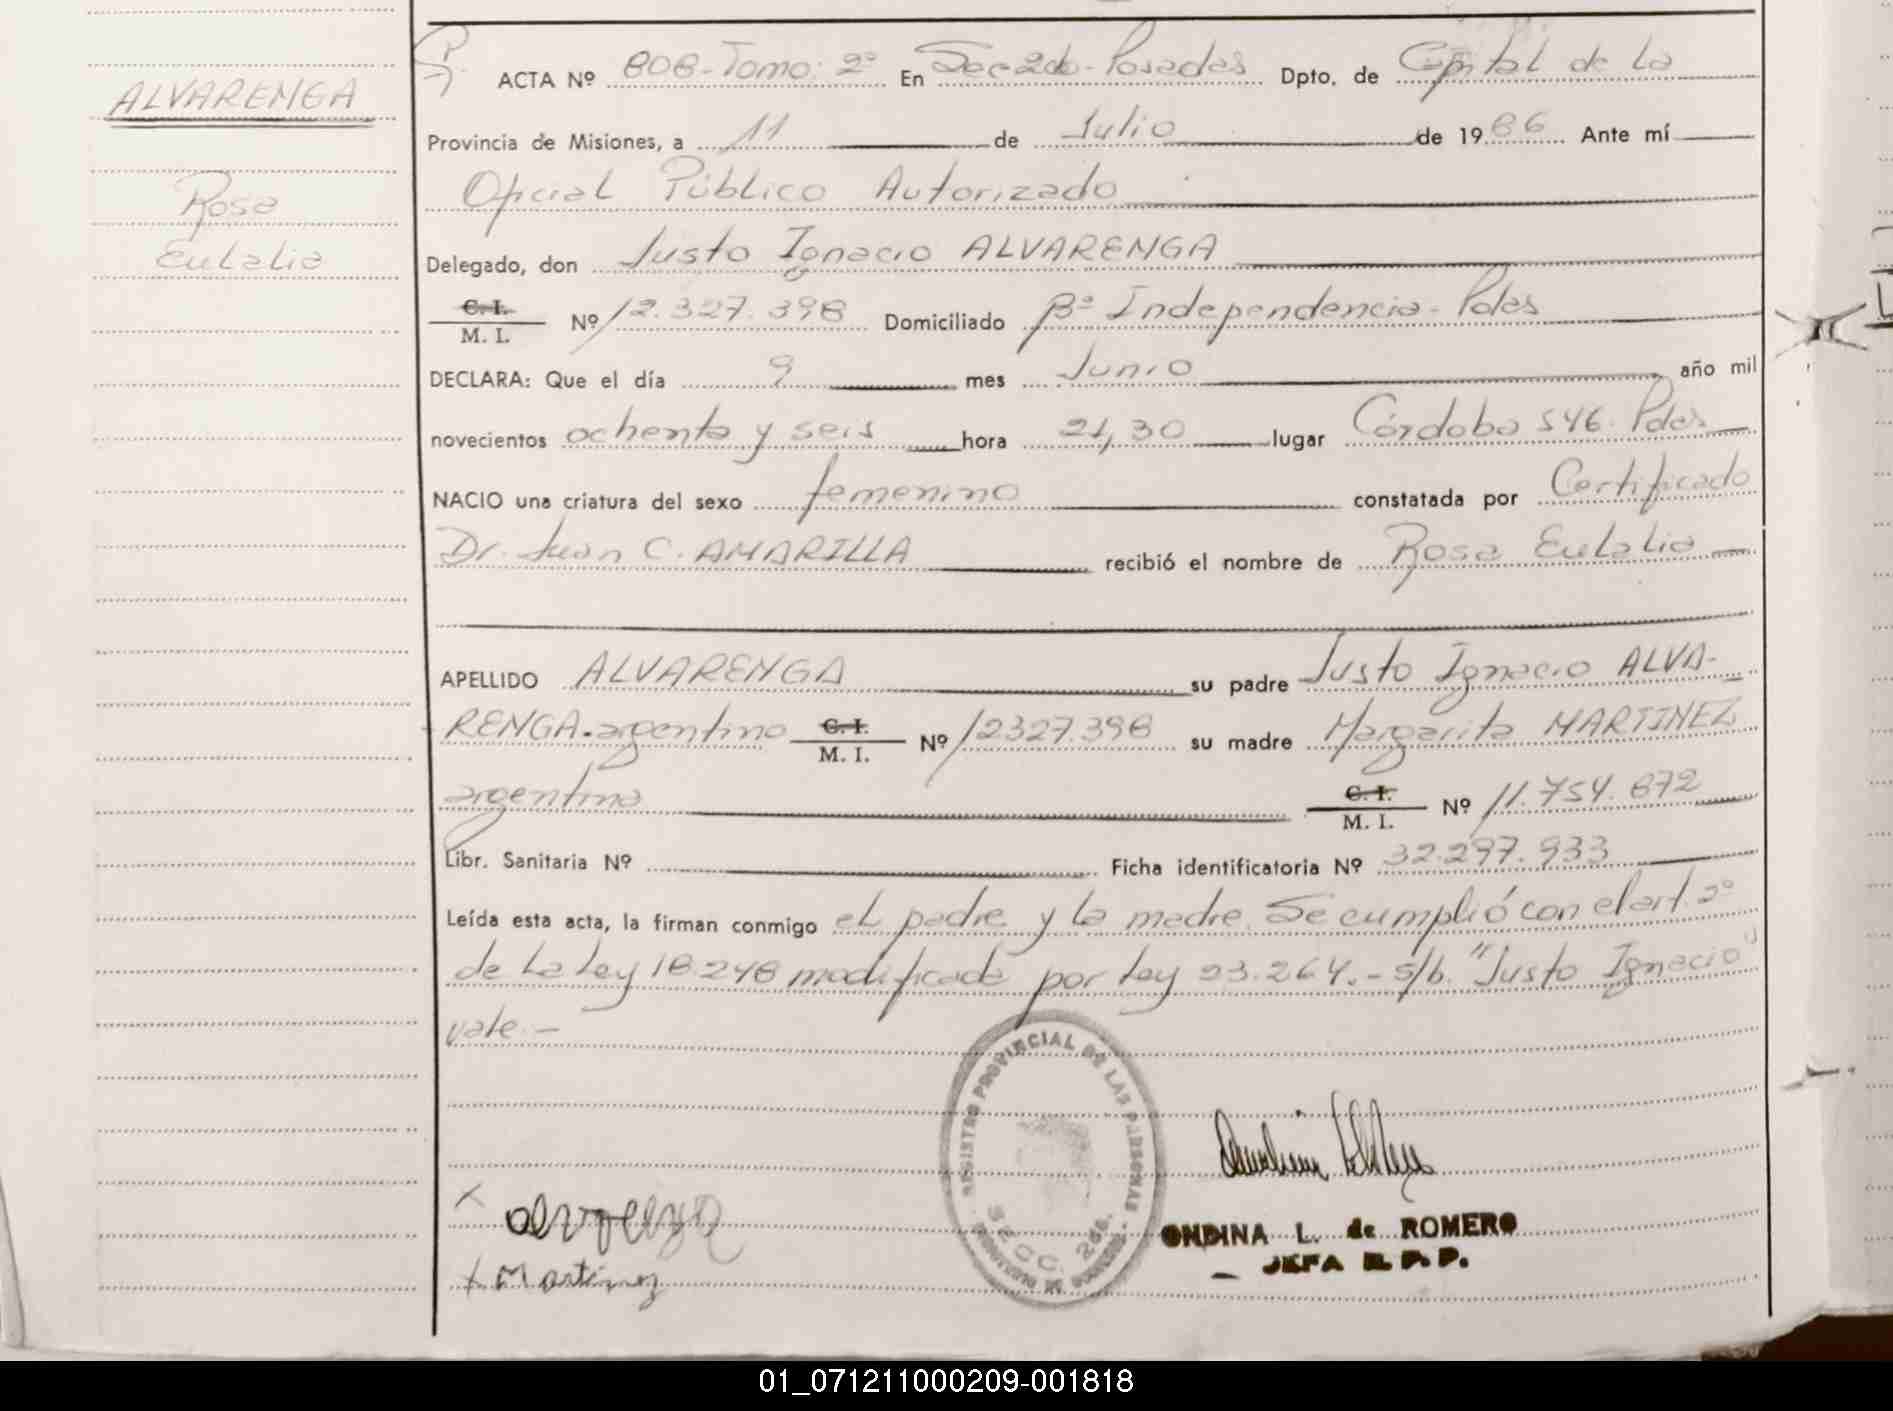 ALVARENGA
Rosa
Eulalia
ACTA Nº 808-Tomo: 2º En Sec2da-Posadas Dpto. de Capital de La
Provincia de Misiones, a 11 de Julio de 1986 Ante mí
Oficial Público Autorizado
Delegado, don Justo Ignacio ALVARENGA
C. I.
M. I. Nº 12.327.398 Domiciliado Bº Independencia-Pdas
DECLARA: Que el día 9 mes Junio año mil
novecientos ochenta y seis hora 21,30 lugar Córdoba 546. Pdas
NACIO una criatura del sexo femenino constatada por Certificado
Dr. Juan C. AMARILLA recibió el nombre de Rosa Eulalia
APELLIDO ALVARENGA su padre Justo Ignacio ALVA-
RENGA-argentino C. I. M. I. Nº 12327.398 su madre Margarita MARTINEZ
argentina C. I. M. I. Nº 11.754.872
Libr. Sanitaria Nº Ficha identificatoria Nº 32.297.933
Leída esta acta, la firman conmigo el padre y la madre. Se cumplió con el art. 2º
de La Ley 18.248 modificada por Ley 23.264.- s/b. "Justo Ignacio"
vale.-
REGISTRO PROVINCIAL DE LAS PERSONAS
SECC. 2da.
x Alvarenga
x Martinez
ONDINA L. de ROMERO
JEFA R. P. P.
01_071211000209-001818